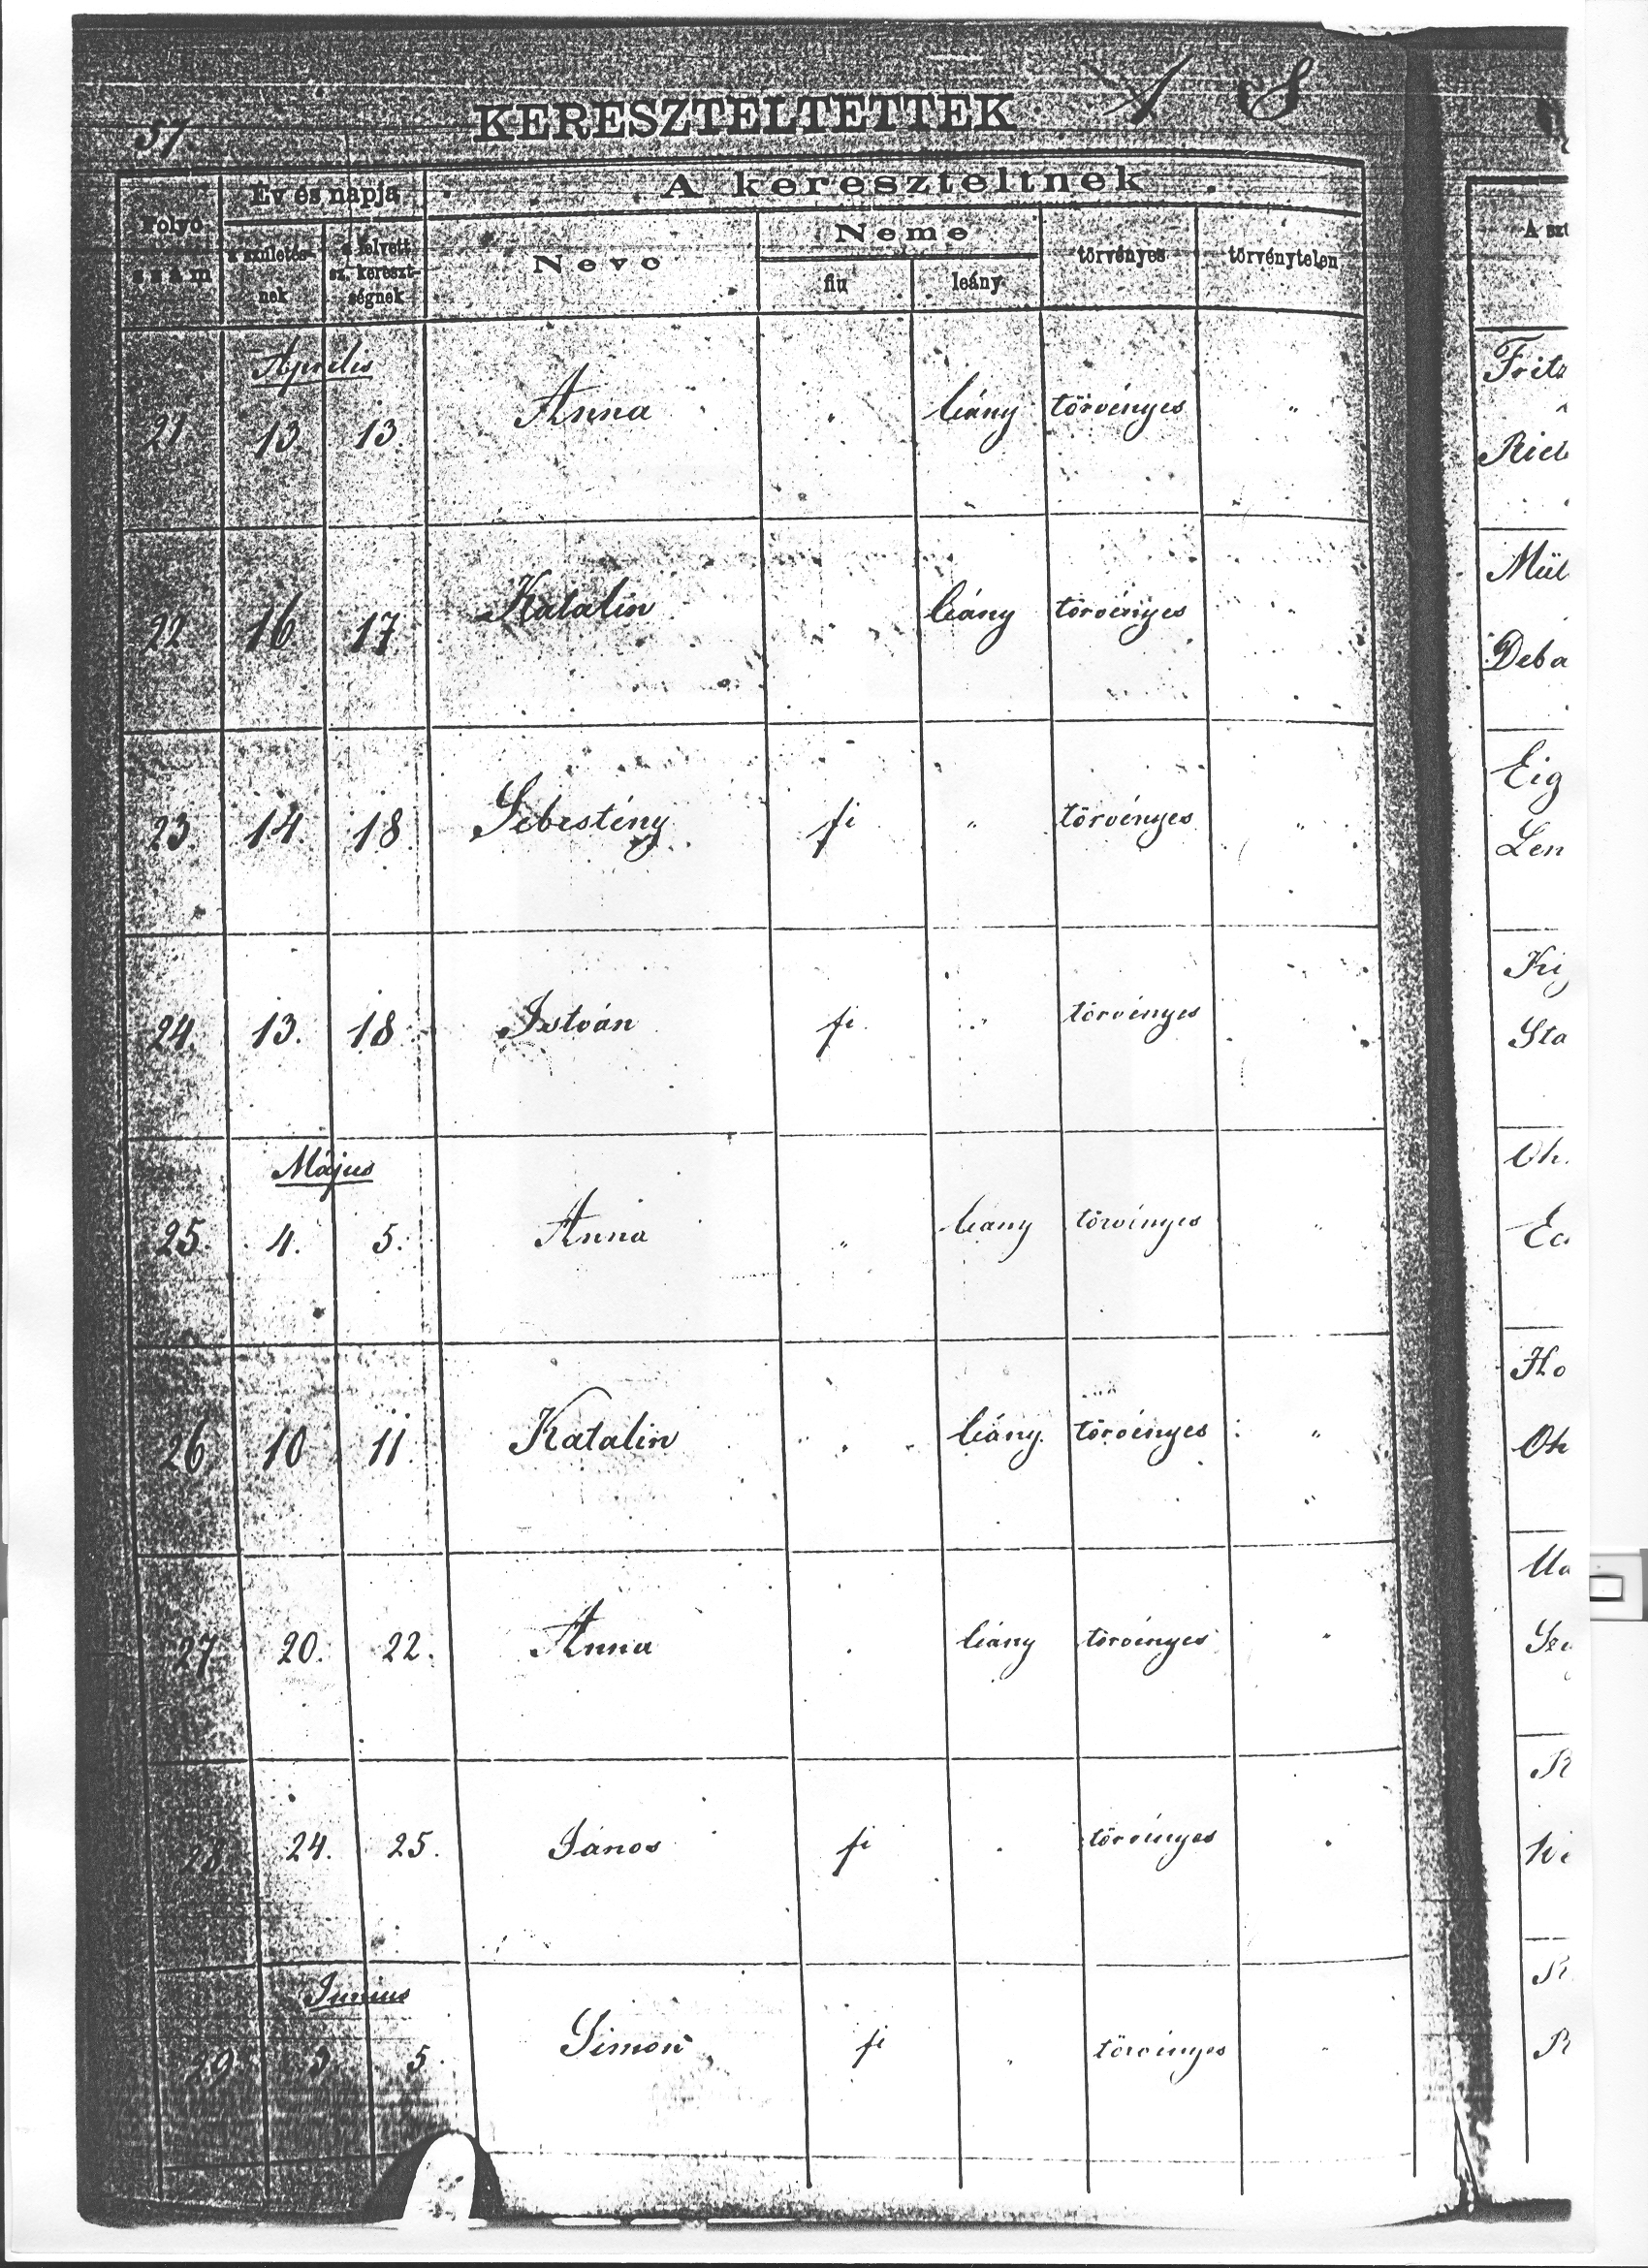 37.
KERESZTELTETTEK A S
Folyó szám
Év és napja
a születés-nek
a felvett sz. kereszt-ségnek
A kereszteltnek
Neve
Neme
fiu
leány
törvényes
törvénytelen
Április
21 13 13. Anna " leány törvényes "
22 16 17 Katalin leány törvényes "
23. 14. 18. Sebestény fi " törvényes "
24. 13. 18 István fi " törvényes
Május
25. 4. 5. Anna " leany törvényes "
26 10 11. Katalin " leány törvényes "
27 20. 22. Anna leány törvényes "
28 24. 25. János fi törvényes
Junius
29 3 5. Simon fi " törvényes "
A szü
Fritz
Rieb
Mül
Deba
Eig
Len
Sta
Oh.
Ho
Oh
R
R
R